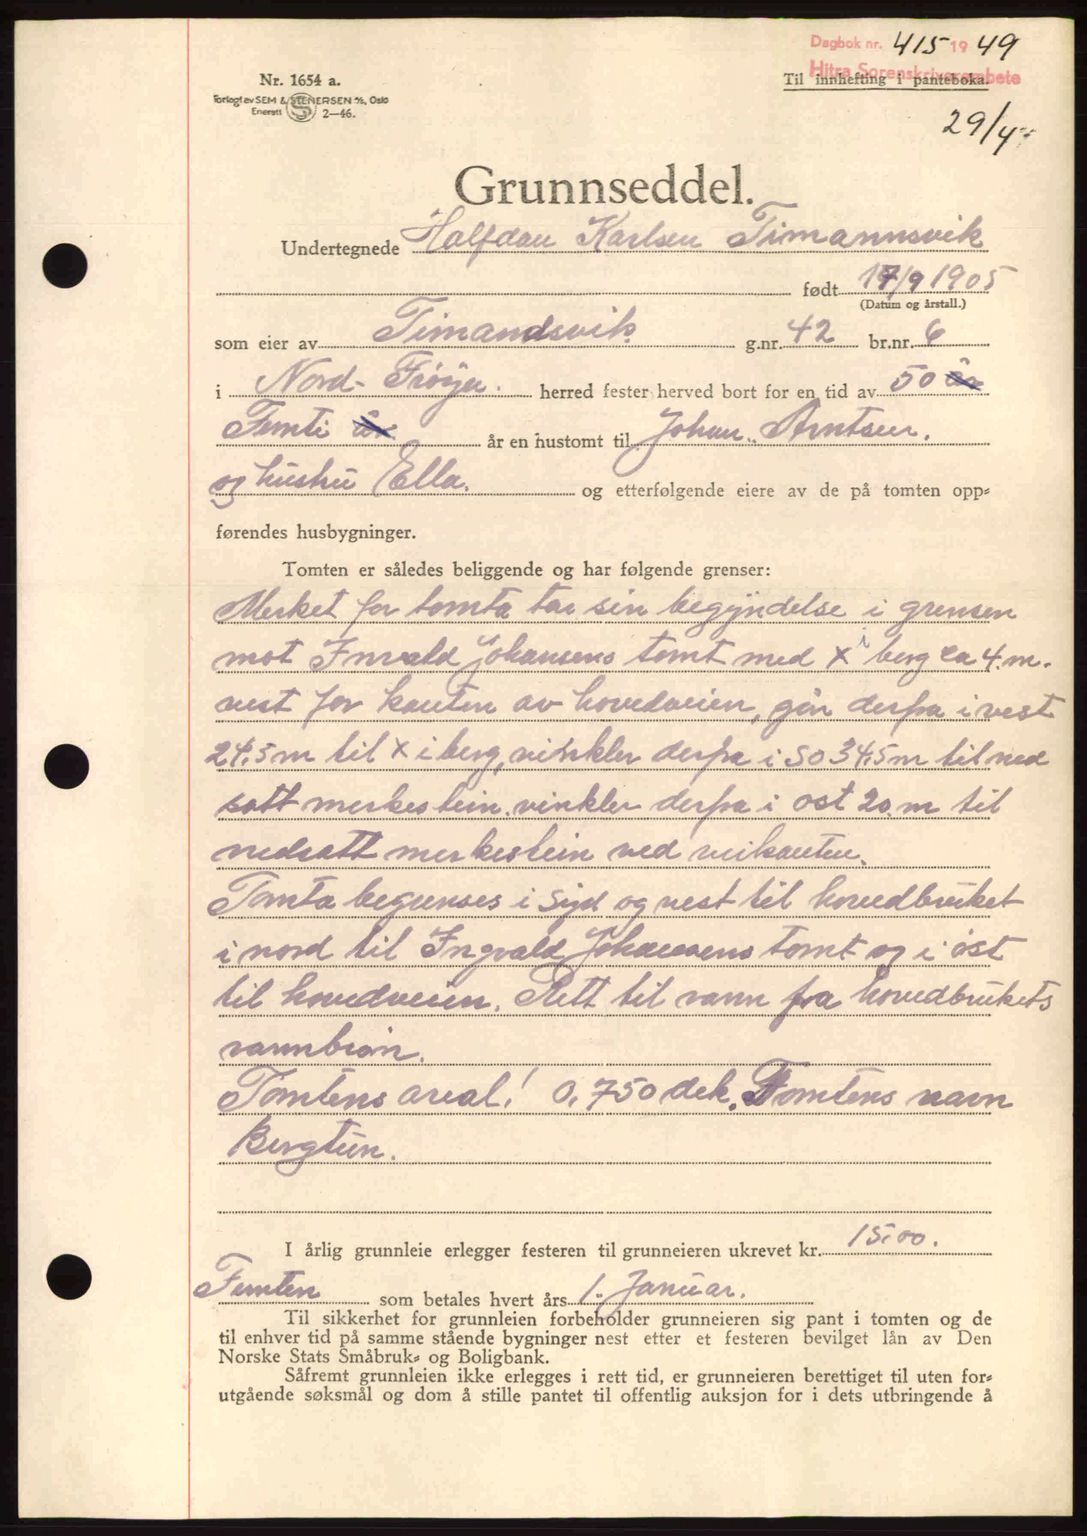 Dagbok nr. 415 1949
Hitra Sorenskriverembete
Nr. 1654 a.
Til innhefting i panteboka.
Forlagt av SEM & STENERSEN A/S, Oslo
Enerett S 2—46.
29/4
Grunnseddel.
Undertegnede Halfdan Karlsen Timannsvik
født 17/9 1905
(Datum og årstall.)
som eier av Timandsvik g.nr. 42 br.nr. 6
i Nord-Frøya. herred fester herved bort for en tid av 50 år
Femti år år en hustomt til Johan Arntsen.
og hustru Ella. og etterfølgende eiere av de på tomten opp=
førendes husbygninger.
Tomten er således beliggende og har følgende grenser:
Merket for tomta tar sin begyndelse i grensen
mot Invald Johansens tomt med X i berg ca 4.m.
vest for kanten av hovedveien, går derfra i vest
24,5m til X i berg, vinkler derfra i so 34,5m til ned
satt merkestein, vinkler derfra i ost 20.m til
nedsatt merkestein ved veikanten.
Tomta begrenses i Syd og vest til hovedbruket
i nord til Ingvald Johansens tomt og i øst
til hovedveien. Rett til vann fra hovedbrukets
vannbrøn.
Tomtens areal! 0,750 dek. Tomtens navn
Bergtun.
I årlig grunnleie erlegger festeren til grunneieren ukrevet kr. 15,00.
Femten som betales hvert års 1. Januar.
Til sikkerhet for grunnleien forbeholder grunneieren sig pant i tomten og de
til enhver tid på samme stående bygninger nest etter et festeren bevilget lån av Den
Norske Stats Småbruk= og Boligbank.
Såfremt grunnleien ikke erlegges i rett tid, er grunneieren berettiget til uten for=
utgående søksmål og dom å stille pantet til offentlig auksjon for i dets utbringende å